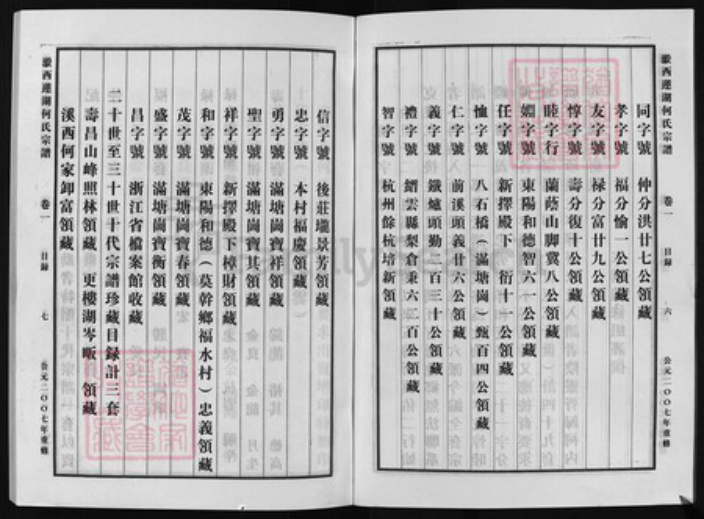 瀔西蓮湖何氏宗譜
卷一
目録
六
公元二〇〇七年重修
同字號 仲分洪廿七公領藏
孝字號 福分愉一公領藏
友字號 禄分富廿九公領藏
惇字號 壽分復十公領藏
睦字行 蘭蔭山脚冀八公領藏
婣字號 東陽和德智六一公領藏
任字號 新擇殿下 衍十一公領藏
恤字號 八石橋（滿塘崗）甄百四公領藏
仁字號 前溪頭義廿六公領藏
義字號 鐵爐頭勤二百三十公領藏
禮字號 縉雲縣梨倉秉六二百公領藏
智字號 杭州餘杭培新領藏
信字號 後莊壠景芳領藏
忠字號 本村福慶領藏
勇字號 滿塘崗寶祥領藏
聖字號 滿塘崗寶其領藏
祥字號 新擇殿下樟財領藏
和字號 東陽和德（莫幹鄉福水村）忠義領藏
茂字號 滿塘崗寶春領藏
盛字號 滿塘崗寶衡領藏
昌字號 浙江省檔案館收藏
二十世至三十世十代宗譜珍藏目録計三套
壽昌山峰照林領藏 更樓湖岑畈 領藏
溪西何家卸富領藏
西蓮湖何氏宗譜
卷一
目録
七
公元二〇〇七年重修